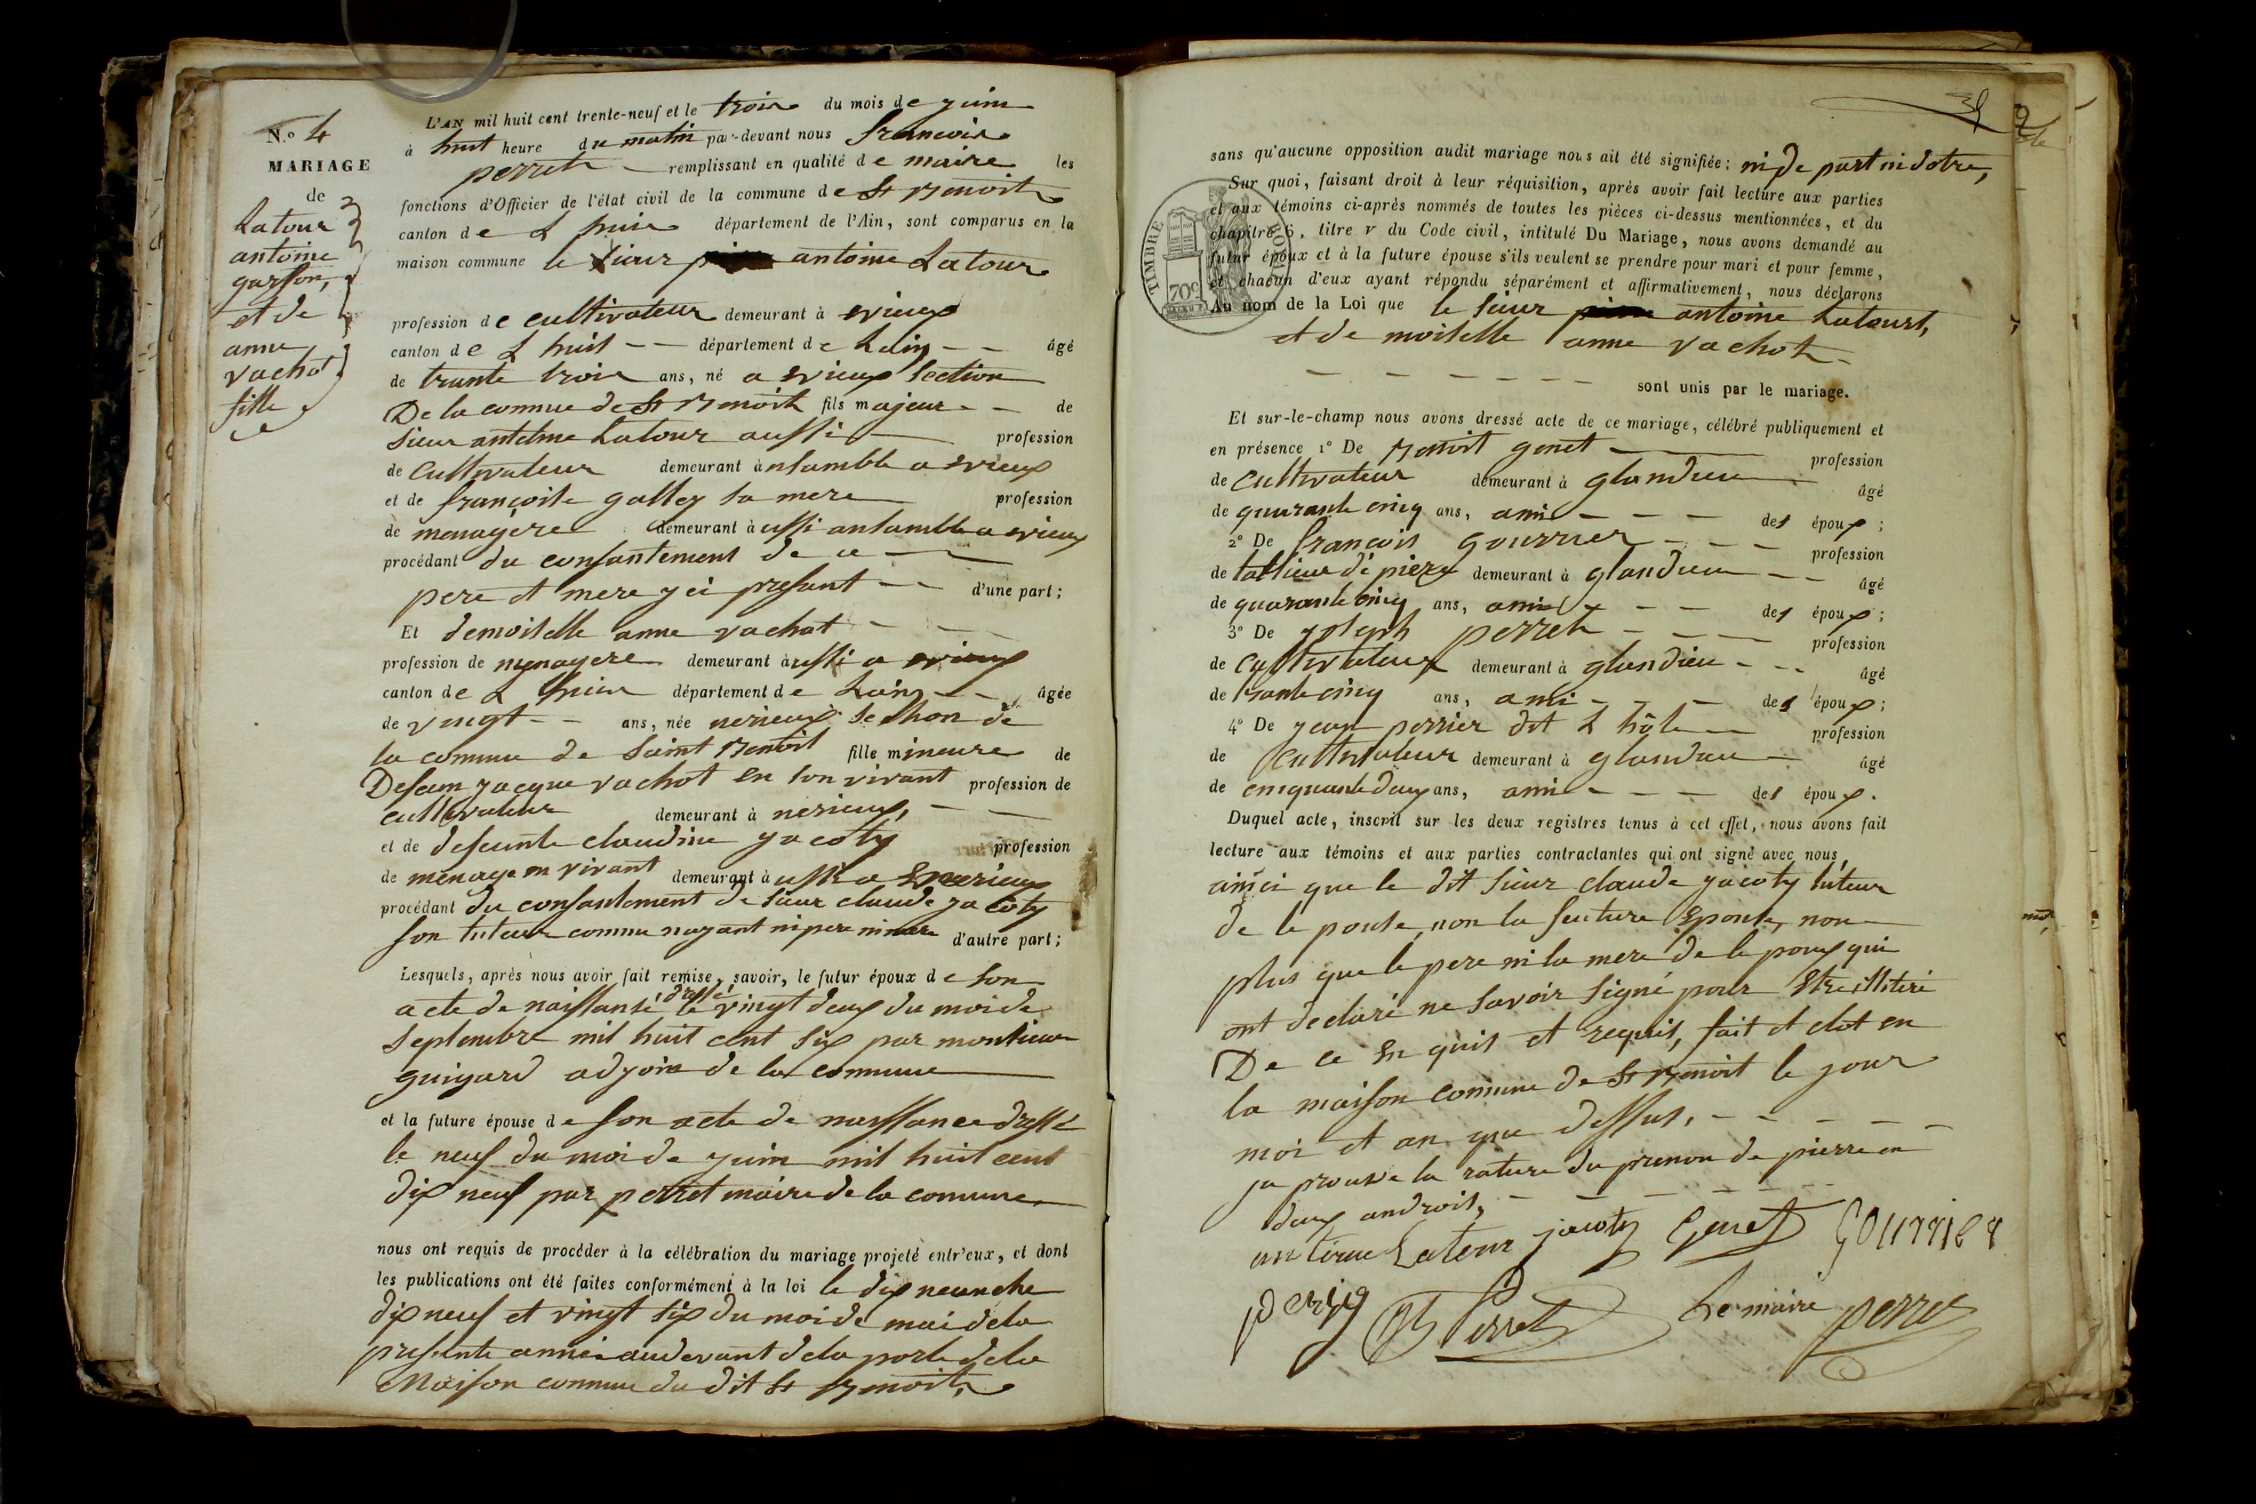 N.o 4
MARIAGE
de
Latour
antoine
garson,
et de
anne
vachot
fille
L'AN mil huit cent trente-neuf et le trois du mois de juin
à huit heure du matin par-devant nous francois
perret remplissant en qualité de maire les
fonctions d'Officier de l'état civil de la commune de St Benoit
canton de L huis département de l'Ain, sont comparus en la
maison commune le sieur antoine Latour
profession de cultivateur demeurant à evieux
canton de L huis département de Lain âgé
de trante trois ans, né a evieux section
De la commue de St Benoit fils majeur de
sieur antelme Latour aussi profession
de cultivateur demeurant à nsamble a evieux
et de françoise galley sa mere profession
de menagere demeurant à ussi ansamble a evieux
procédant du consantement de ce
pere et mere yci present d'une part;
Et demoiselle anne vachot
profession de menagere demeurant àussi a evieux
canton de L huis département de Lain âgée
de vingt ans, née nerieux section de
la commue de saint Benoit fille mineure de
Defeun jacque vachot en son vivant profession de
cultivateur demeurant à nerieux,
et de defeunte claudine jacoty profession
de menage en vivant demeurant à ussi a nerieux
procédant du consantement de sieur claude jacoty
son tuteur comme nayant ni pere ni mere d'autre part;
Lesquels, après nous avoir fait remise, savoir, le futur époux de son
acte de naissanse dressé le vingt deux du moi de
septembre mil huit cent six par monsieur
guigard adjoin de la commune
et la future épouse de son acte de naissance dressé
le neuf du moi de juin mil huit cent
dix neuf par perret maire de la comune
nous ont requis de procéder à la célébration du mariage projeté entr'eux, et dont
les publications ont été faites conformément à la loi le dix
dix neuf et vingt six du moi de mai dela
presente année audevant dela porte dela
Maison commue du dit St Benoit,
39
sans qu'aucune opposition audit mariage nous ait été signifiée; ni de part ni dotre,
Sur quoi, faisant droit à leur réquisition, après avoir fait lecture aux parties
et aux témoins ci-après nommés de toutes les pièces ci-dessus mentionnées, et du
chapitre 6, titre v du Code civil, intitulé Du Mariage, nous avons demandé au
futur époux et à la future épouse s'ils veulent se prendre pour mari et pour femme,
et chacun d'eux ayant répondu séparément et affirmativement, nous déclarons
TIMBRE ROYAL
70c
Au nom de la Loi que le sieur antoine Latourt,
et de moiselle anne vachot
sont unis par le mariage.
Et sur-le-champ nous avons dressé acte de ce mariage, célébré publiquement et
en présence 1o De Benoit genet profession
de cultivateur demeurant à glandieu âgé
de quarante cinq ans, ami des époux;
2o De francois gourrier profession
de tallieur de pierre demeurant à glandieu âgé
de quarante cinq ans, ami des époux;
3o De joseph perret profession
de cultivateur demeurant à glandieu âgé
de trante cinq ans, ami des époux;
4o De jean perrier dit L hôte profession
de cultivateur demeurant à glandieu âgé
de cinquante deux ans, ami des époux.
Duquel acte, inscrit sur les deux registres tenus à cet effet, nous avons fait
lecture aux témoins et aux parties contractantes qui ont signé avec nous,
ainsi que le dit sieur claude jacoty tuteur
de le pouse, non la feuture Epouse, non
plus que le pere ni la mere de le poux qui
ont declaré ne savoir signé pour Etre illiteré
De ce en quis et requis, fait et clot en
la maison comune de St Benoit le jour
moi et an que dessus,
ja prouve la rature du prenon de pierre en
deux androits,
antoine Latour jacoty Genet GOURRIER
perrig Perret Le maire perret